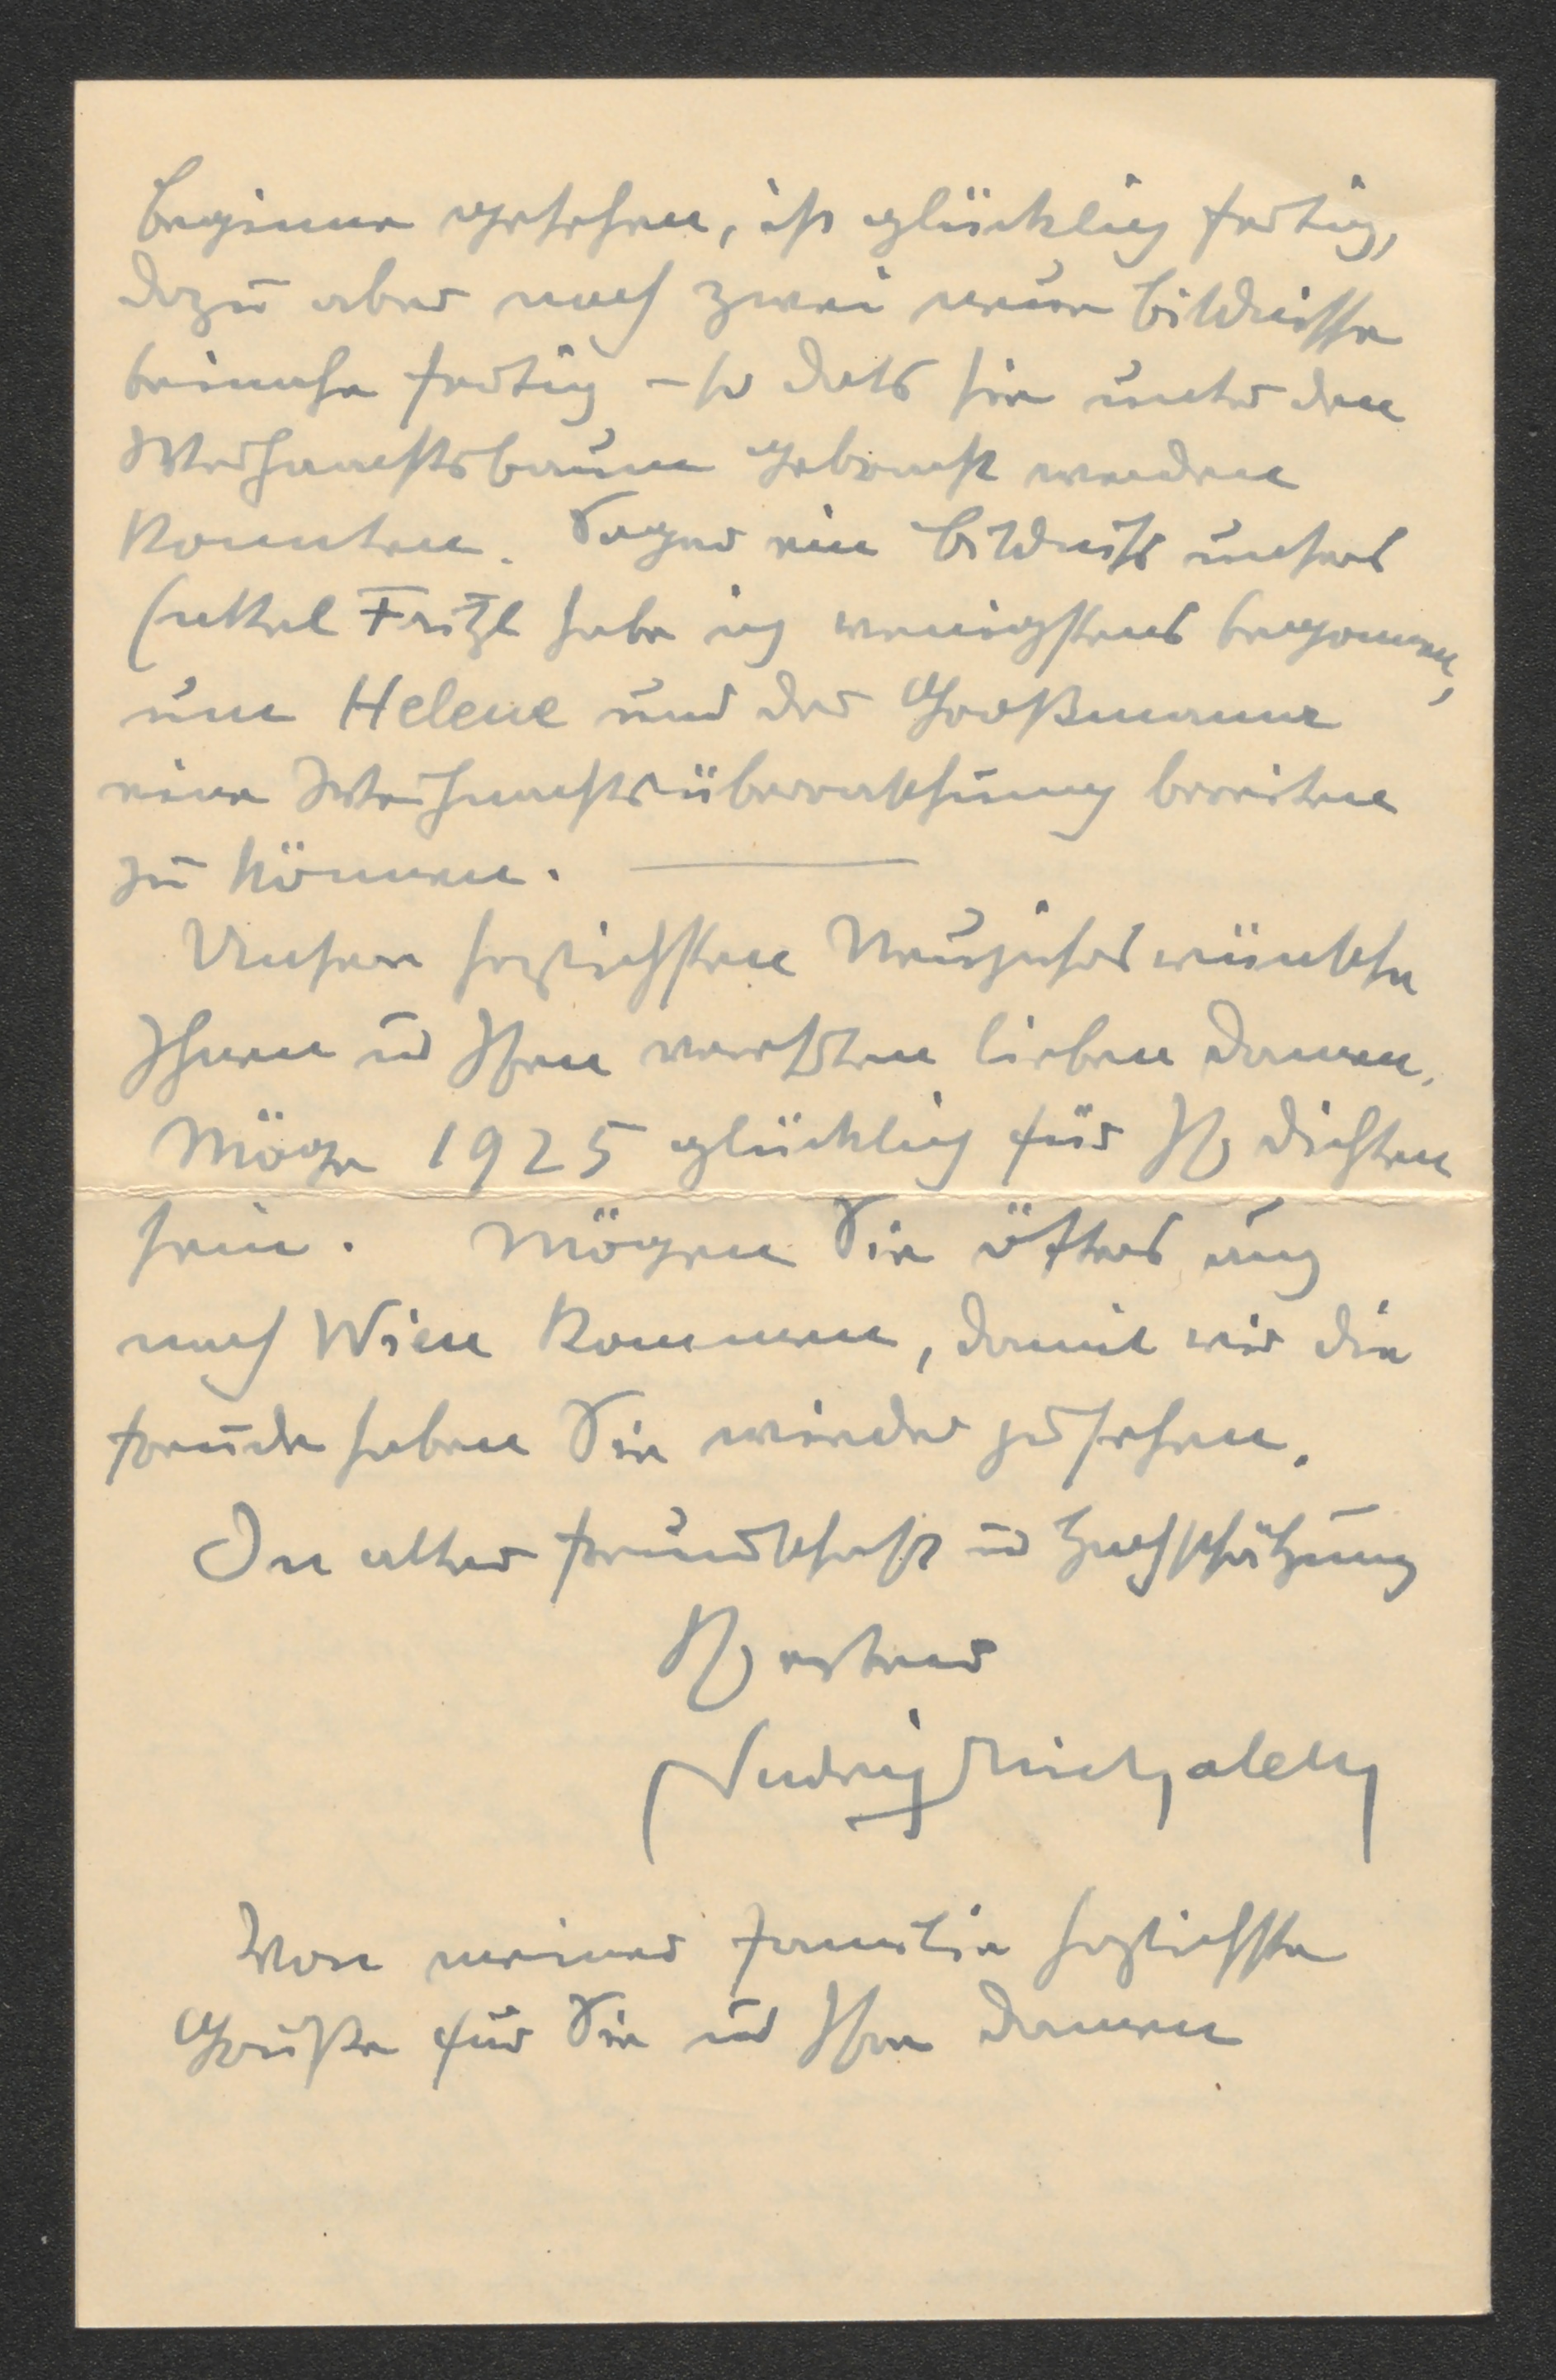 beginne gesehen, ist glücklich fertig,
dazu aber noch zwei neue Bildnisse
beinahe fertig – so dass sie unter den
Weihnachtsbaum gebracht werden
konnten. Sogar ein Bildniss unsers
Enkel Fritzl habe ich wenigstens begonnen,
um Helene und der Großmama
eine Weihnachtsüberraschung bereiten
zu können.
Unsere herzlichsten Neujahrswünsche
Ihnen u Ihren verehrten lieben Damen.
Möge 1925 glücklich für Ihr Dichten
sein. Mögen Sie öfters auch
nach Wien kommen, damit wir die
Freude haben Sie wieder zu sehen.
In alter Freundschaft u Hochschätzung
Ihr ergebener
Ludwig Michalek
Von meiner Familie herzlichste
Grüße für Sie u Ihre Damen